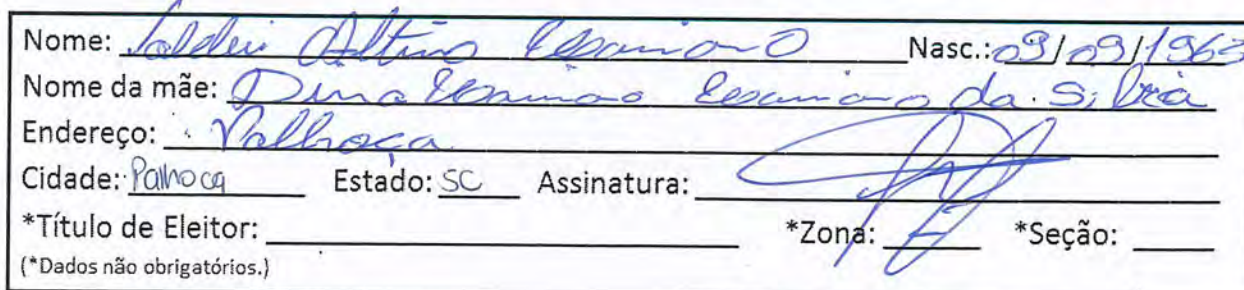 Nome: Altino Nasc.: 09/09/1963
Nome da mãe: Dina da Silva
Endereço: Palhoça
Cidade: Palhoça Estado: SC Assinatura:
*Título de Eleitor: *Zona: *Seção:
(*Dados não obrigatórios.)